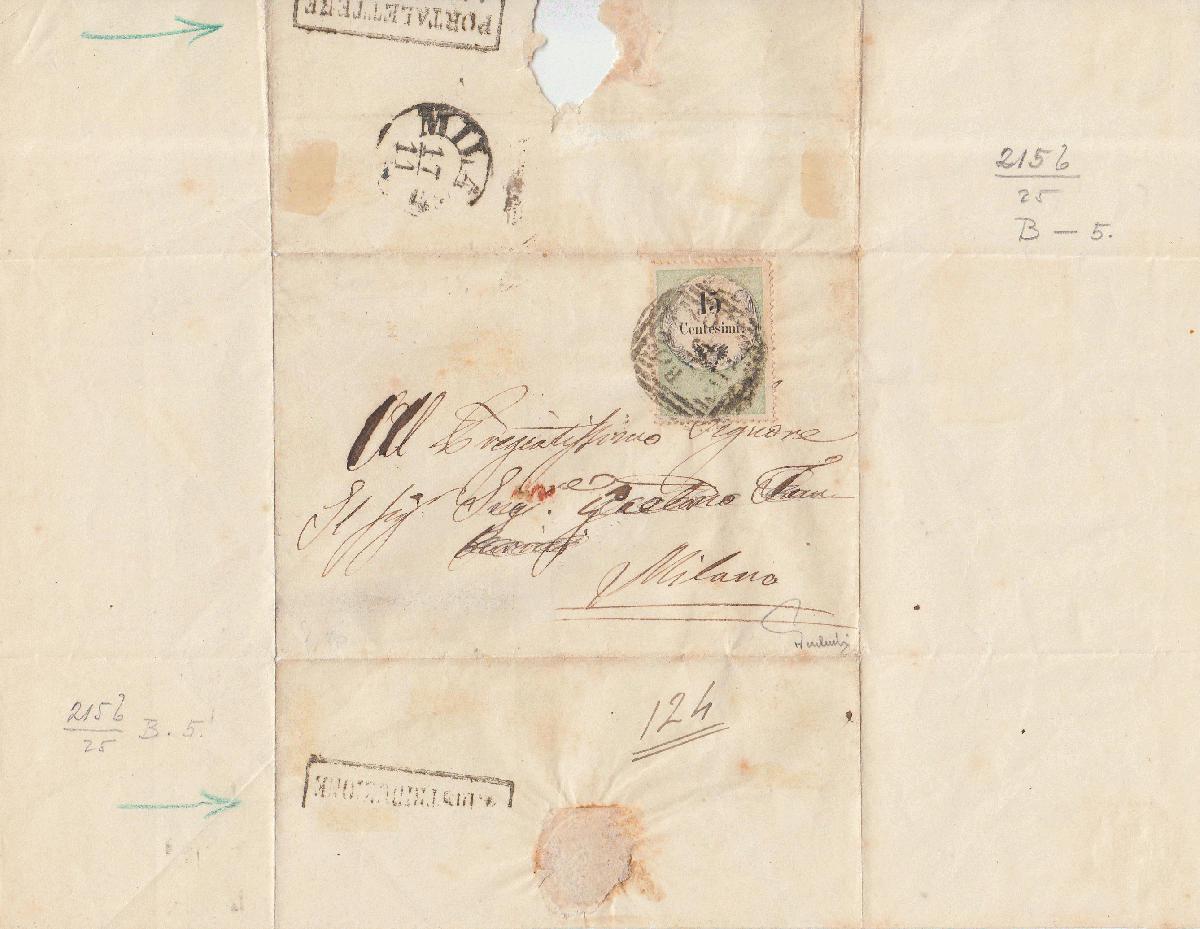 PORTALETTERE
MIL
17
11
2156
25
B - 5.
15
Centesimi
All Pregiatissimo Signore
Il Sig. Ing.re Gaetano
Milano
124
2156
25
B. 5.
DISTRIBUZIONE